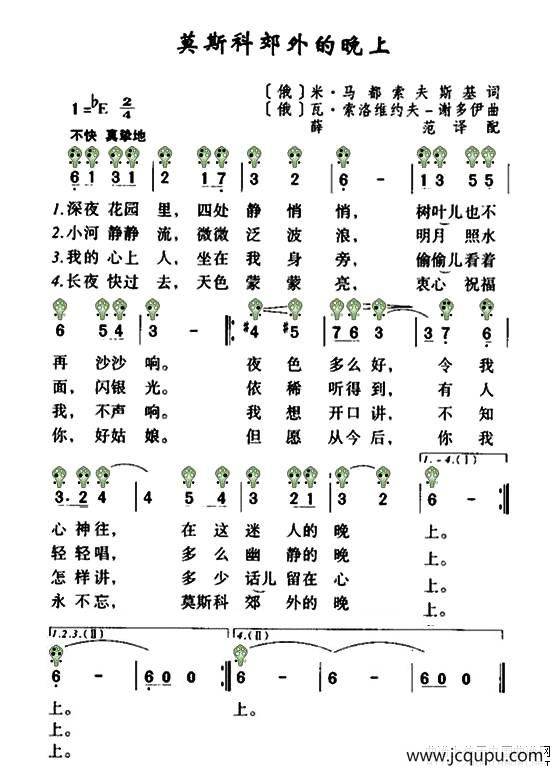 莫斯科郊外的晚上
〔俄〕米·马都索夫斯基词
1=♭E 2/4
〔俄〕瓦·索洛维约夫-谢多伊曲
薛 范译配
不快 真挚地
6 1 3 1 2 1 7 3 2 6 - 1 3 5 5
1.深夜花园里，四处静悄悄， 树叶儿也不
2.小河静静流，微微泛波浪， 明月照水
3.我的心上人，坐在我身旁， 偷偷儿看着
4.长夜快过去，天色蒙蒙亮， 衷心祝福
6 5 4 3 - #4 #5 7 6 3 3 7 6
再沙沙响。 夜色多么好， 令我
面，闪银光。 依稀听得到， 有人
我，不声响。 我想开口讲， 不知
你，好姑娘。 但愿从今后， 你我
1.-4.(Ⅰ)
3. 2 4 4 5 4 3 2 1 3 2 6 -
心神往， 在这迷人的晚上。
轻轻唱， 多么幽静的晚上。
怎样讲， 多少话儿留在心上。
永不忘， 莫斯科郊外的晚上。
1.2.3.(Ⅱ) 4.(Ⅱ)
6 - 6 0 0 0 6 - 6 - 6 0 0
上。 上。
上。
上。
www.jcqupu.com